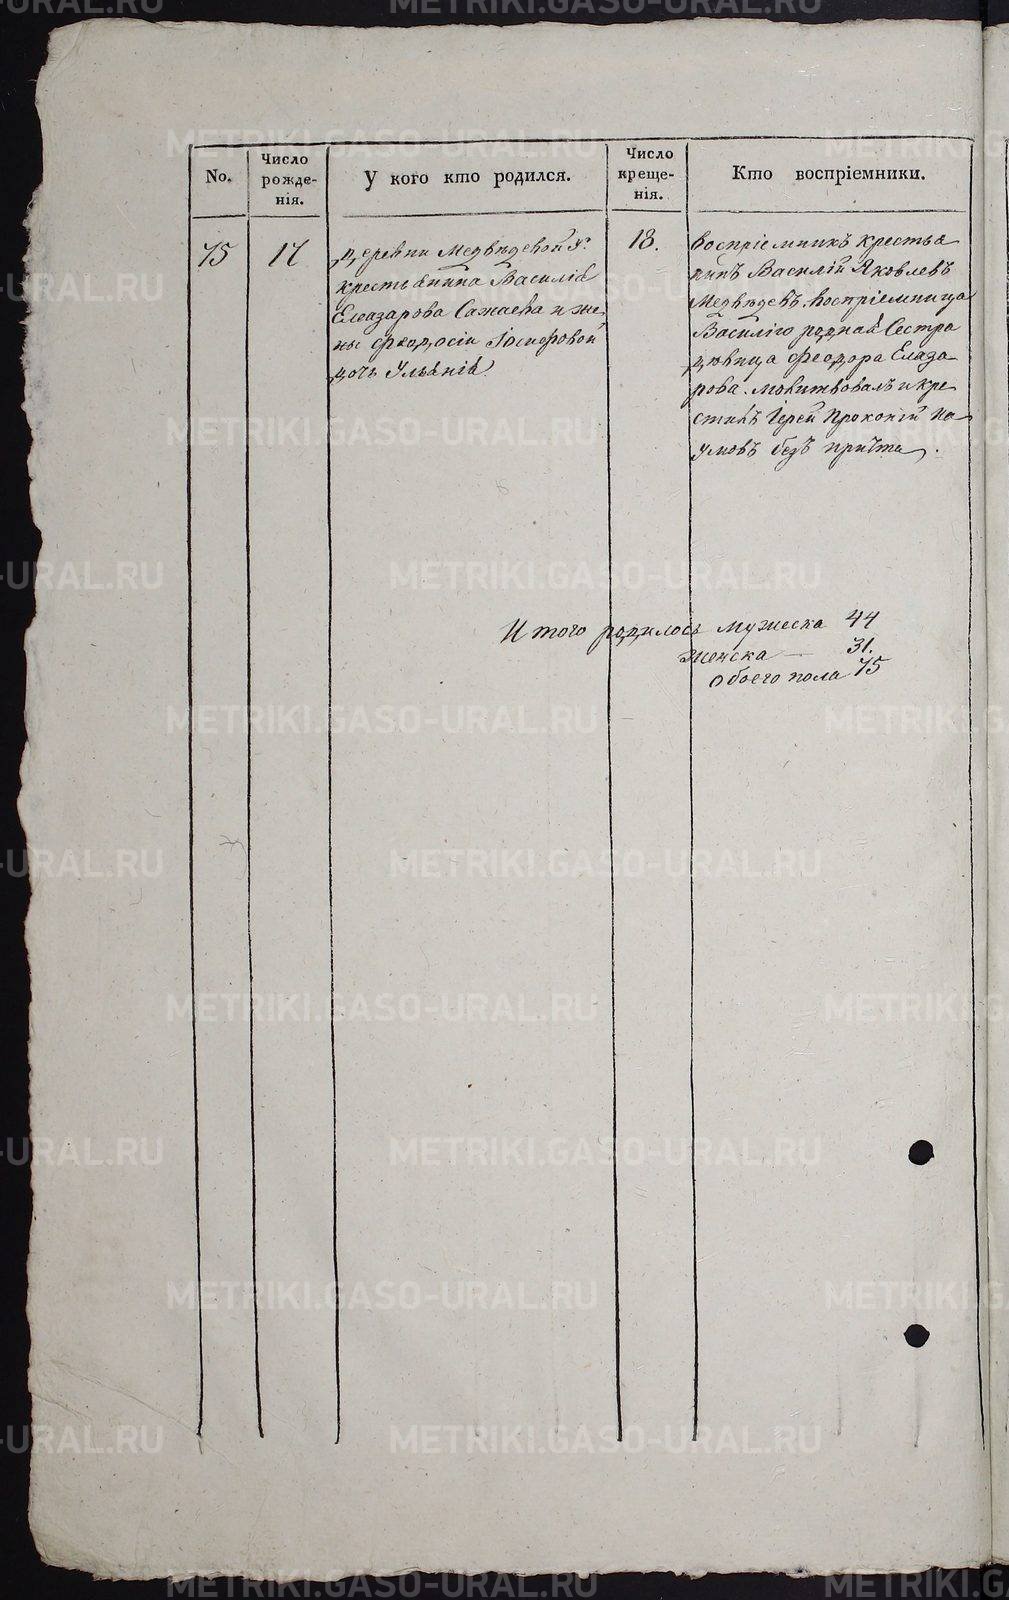 No.
Число
рожде-
нія.
У кого кто родился.
Число
креще-
нія.
Кто воспріемники.
75
17
деревни Медвѣдевой
крестьянина Василія
Елеазарова Сажаева и же
ны Феодосіи Іосифовой
дочь Ульянія.
18.
воспріемникъ крестья
нинъ Василій Яковлевъ
Медвѣдевъ. воспріемница
Василіго родная Сестра
дѣвица Феодора Елеаза
рова. молитвовалъ и кре
стилъ Іерей Прокопій На
умовъ безъ причта.
Итого родилось мужеска 44
Женска — 31.
обоего пола 75
METRIKI.GASO-URAL.RU